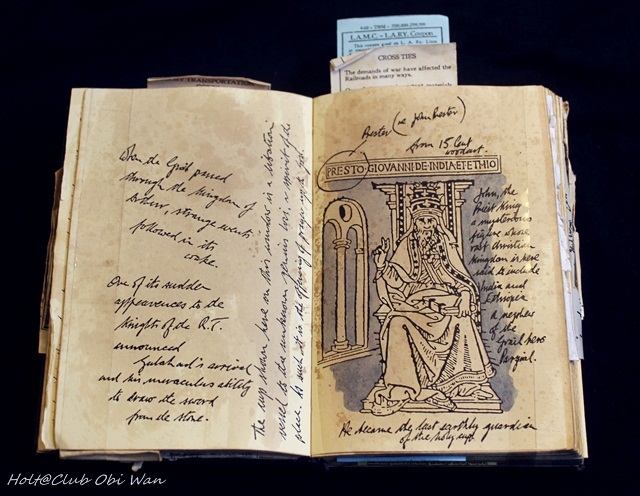 L.A.M.C. – L.A.RY. Coupon
This coupon good on L. A. Ry. Lines
CROSS TIES
The demands of war have affected the
Railroads in many ways.
TRANSPORTATION
When the Grail passed
through the Kingdom of
Arthur, strange events
followed in its
wake.
One of its sudden
appearances to the
Knights of the R.T.
announced
Galahad's arrival
and his miraculous ability
to draw the sword
from the stone.
The cup shown here on this window is a libation
vessel to the unknown genius loci, a spirit of the
place. As such it is the offering of prayer up to
Prester ( John Prester)
from 15 Cent
woodcut.
PRESTO·GIOVANNI·DE·INDIA·ET·ETHIO
John, the
Priest King
a mysterious
figure whose
vast Christian
Kingdom is here
said to include
India and
Ethiopia
a nephew
of the
Grail hero
Parzival.
He became the last earthly guardian
of the holy cup
Holt@Club Obi Wan